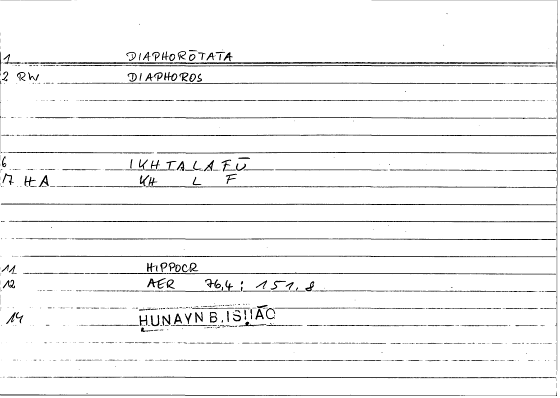 1 DIAPHORŌTATA
2 RW DIAPHOROS
6 IKHTALAFŪ
7 HA KH L F
11 HIPPOCR
12 AER 76,4 : 151,8
14 ḤUNAYN B. ISḤĀQ